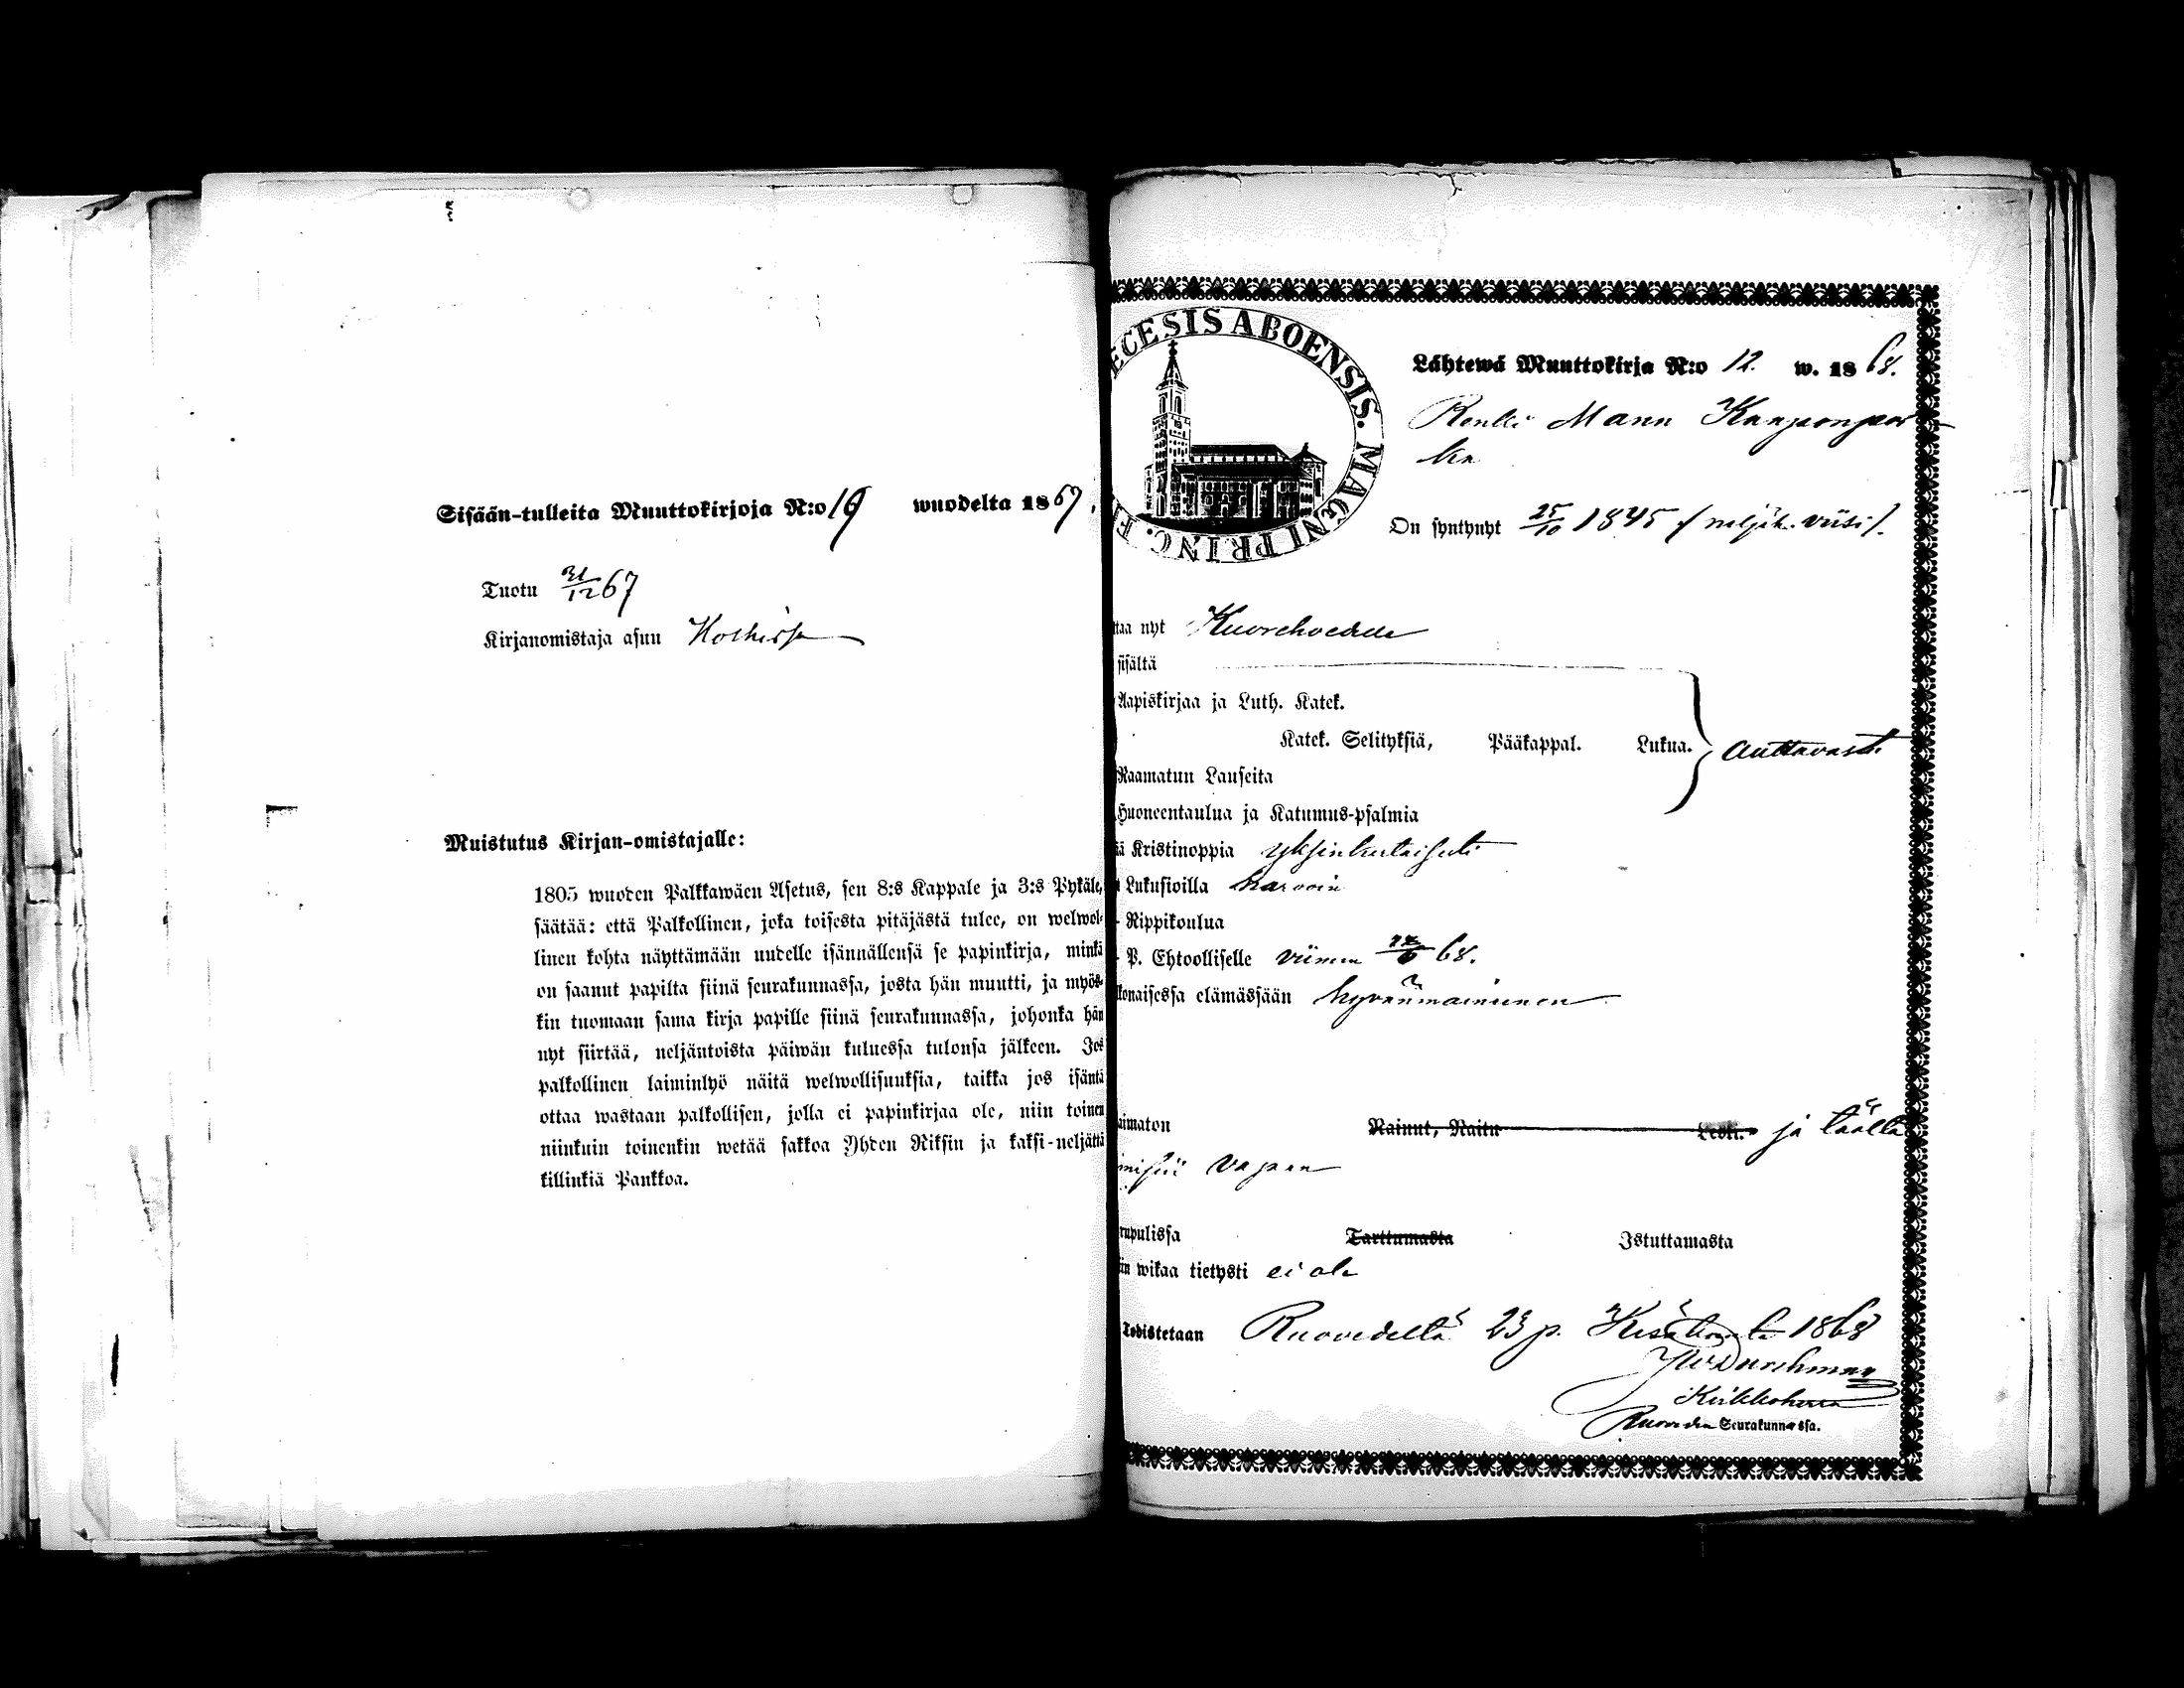 Sisään-tulleita Muuttokirjoja N:o 19 wuodelta 1867.
Tuotu 31/12 67
Kirjanomistaja asuu
Muistutus Kirjan-omistajalle:
1805 wuoden Palkkawäen Asetus, sen 8:s Kappale ja 3:s Pykäle,
säätää: että Palkollinen, joka toisesta pitäjästä tulee, on welwol-
linen kohta näyttämään uudelle isännällensä se papinkirja, minkä
on saanut papilta siinä seurakunnassa, josta hän muutti, ja myös-
kin tuomaan sama kirja papille siinä seurakunnassa, johonka hän
nyt siirtää, neljäntoista päiwän kuluessa tulonsa jälkeen. Jos
palkollinen laiminlyö näitä welwollisuuksia, taikka jos isäntä
ottaa wastaan palkollisen, jolla ei papinkirjaa ole, niin toinen
niinkuin toinenkin wetää sakkoa Yhden Riksin ja kaksi-neljättä
killinkiä Pankkoa.
ECESIS ABOENSIS. MAGNI PRINC. F
Lähtewä Muuttokirja N:o 12. w. 1868.
Renki Manu
On syntynyt 25/10 1845 /neljäk. viisi/.
taa nyt Kuorehvedelle
sisältä
Aapiskirjaa ja Luth. Katek.
Katek. Selityksiä, Pääkappal. Lukua. auttavasti
Raamatun Lauseita
Huoneentaulua ja Katumus-psalmia
ä Kristinoppia yksinkertaisesti
Lukusioilla harvoin
Rippikoulua
P. Ehtoolliselle viimen 68.
konaisessa elämässään hyvänmainenen
aimaton Nainut, Naitu Leski. ja täältä
misiin vapaa
rupulissa Tarttumasta Istuttamasta
in wikaa tietysti ei ole
Todistetaan Ruovedeltä 23 p. Kesäkuuta 1868
Durchman
Kirkkoherra
Ruoveden Seurakunnassa.